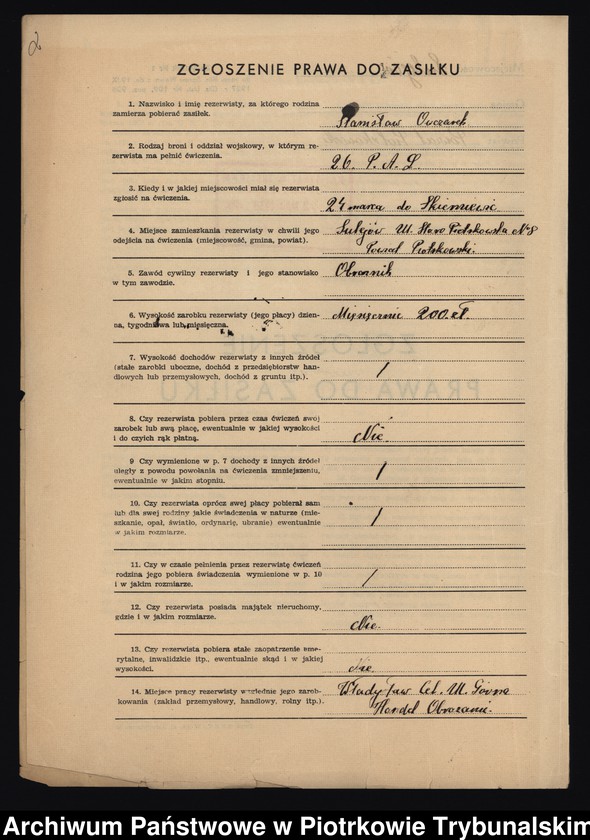 2
ZGŁOSZENIE PRAWA DO ZASIŁKU
1. Nazwisko i imię rezerwisty, za którego rodzina
zamierza pobierać zasiłek.
Stanisław Owczarek
2. Rodzaj broni i oddział wojskowy, w którym re-
zerwista ma pełnić ćwiczenia.
26. P. A. L.
3. Kiedy i w jakiej miejscowości miał się rezerwista
zgłosić na ćwiczenia.
24 marca do Skierniewic
4. Miejsce zamieszkania rezerwisty w chwili jego
odejścia na ćwiczenia (miejscowość, gmina, powiat).
Sulejów Ul. Piotrkowska Nr 8
Powiat Piotrkowski.
5. Zawód cywilny rezerwisty i jego stanowisko
w tym zawodzie.
6. Wysokość zarobku rezerwisty (jego płacy) dzien-
na, tygodniowa lub miesięczna.
Miesięcznie 200 zł.
7. Wysokość dochodów rezerwisty z innych źródeł
(stałe zarobki uboczne, dochód z przedsiębiorstw han-
dlowych lub przemysłowych, dochód z gruntu itp.).
/
8. Czy rezerwista pobiera przez czas ćwiczeń swój
zarobek lub swą płacę, ewentualnie w jakiej wysokości
i do czyich rąk płatną.
Nie.
9 Czy wymienione w p. 7 dochody z innych źródeł
uległy z powodu powołania na ćwiczenia zmniejszeniu,
ewentualnie w jakim stopniu.
/
10. Czy rezerwista oprócz swej płacy pobierał sam
lub dla swej rodziny jakie świadczenia w naturze (mie-
szkanie, opał, światło, ordynarię, ubranie) ewentualnie
w jakim rozmiarze.
/
11. Czy w czasie pełnienia przez rezerwistę ćwiczeń
rodzina jego pobiera świadczenia wymienione w p. 10
i w jakim rozmiarze.
/
12. Czy rezerwista posiada majątek nieruchomy,
gdzie i w jakim rozmiarze.
Nie.
13. Czy rezerwista pobiera stałe zaopatrzenie eme-
rytalne, inwalidzkie itp., ewentualnie skąd i w jakiej
wysokości.
Nie.
14. Miejsce pracy rezerwisty względnie jego zarob-
kowania (zakład przemysłowy, handlowy, rolny itp.).
Władysław
Handel
Archiwum Państwowe w Piotrkowie Trybunalskim